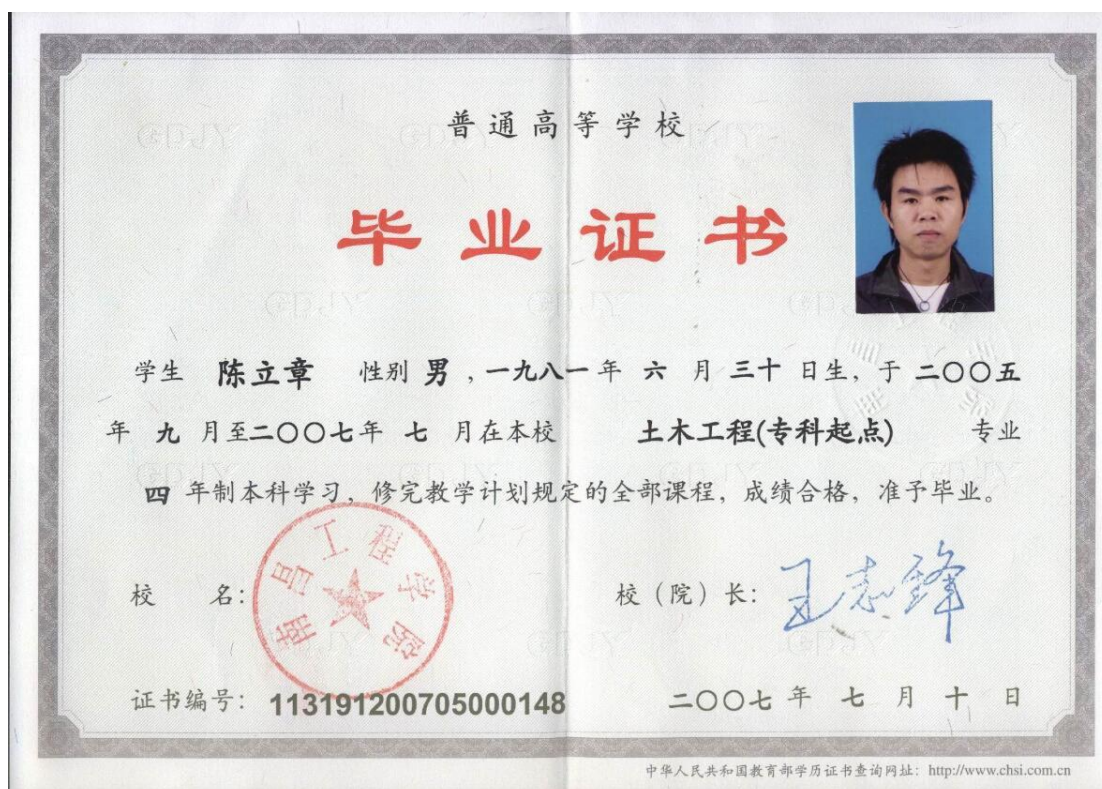 普通高等学校
毕业证书
学生 陈立章 性别 男，一九八一年 六 月 三十 日生，于 二〇〇五
年 九 月至二〇〇七年 七 月在本校 土木工程(专科起点) 专业
四 年制本科学习，修完教学计划规定的全部课程，成绩合格，准予毕业。
南昌工程学院
校 名： 校（院）长： 王志锋
证书编号： 113191200705000148 二〇〇七 年 七 月 十 日
中华人民共和国教育部学历证书查询网址：http://www.chsi.com.cn